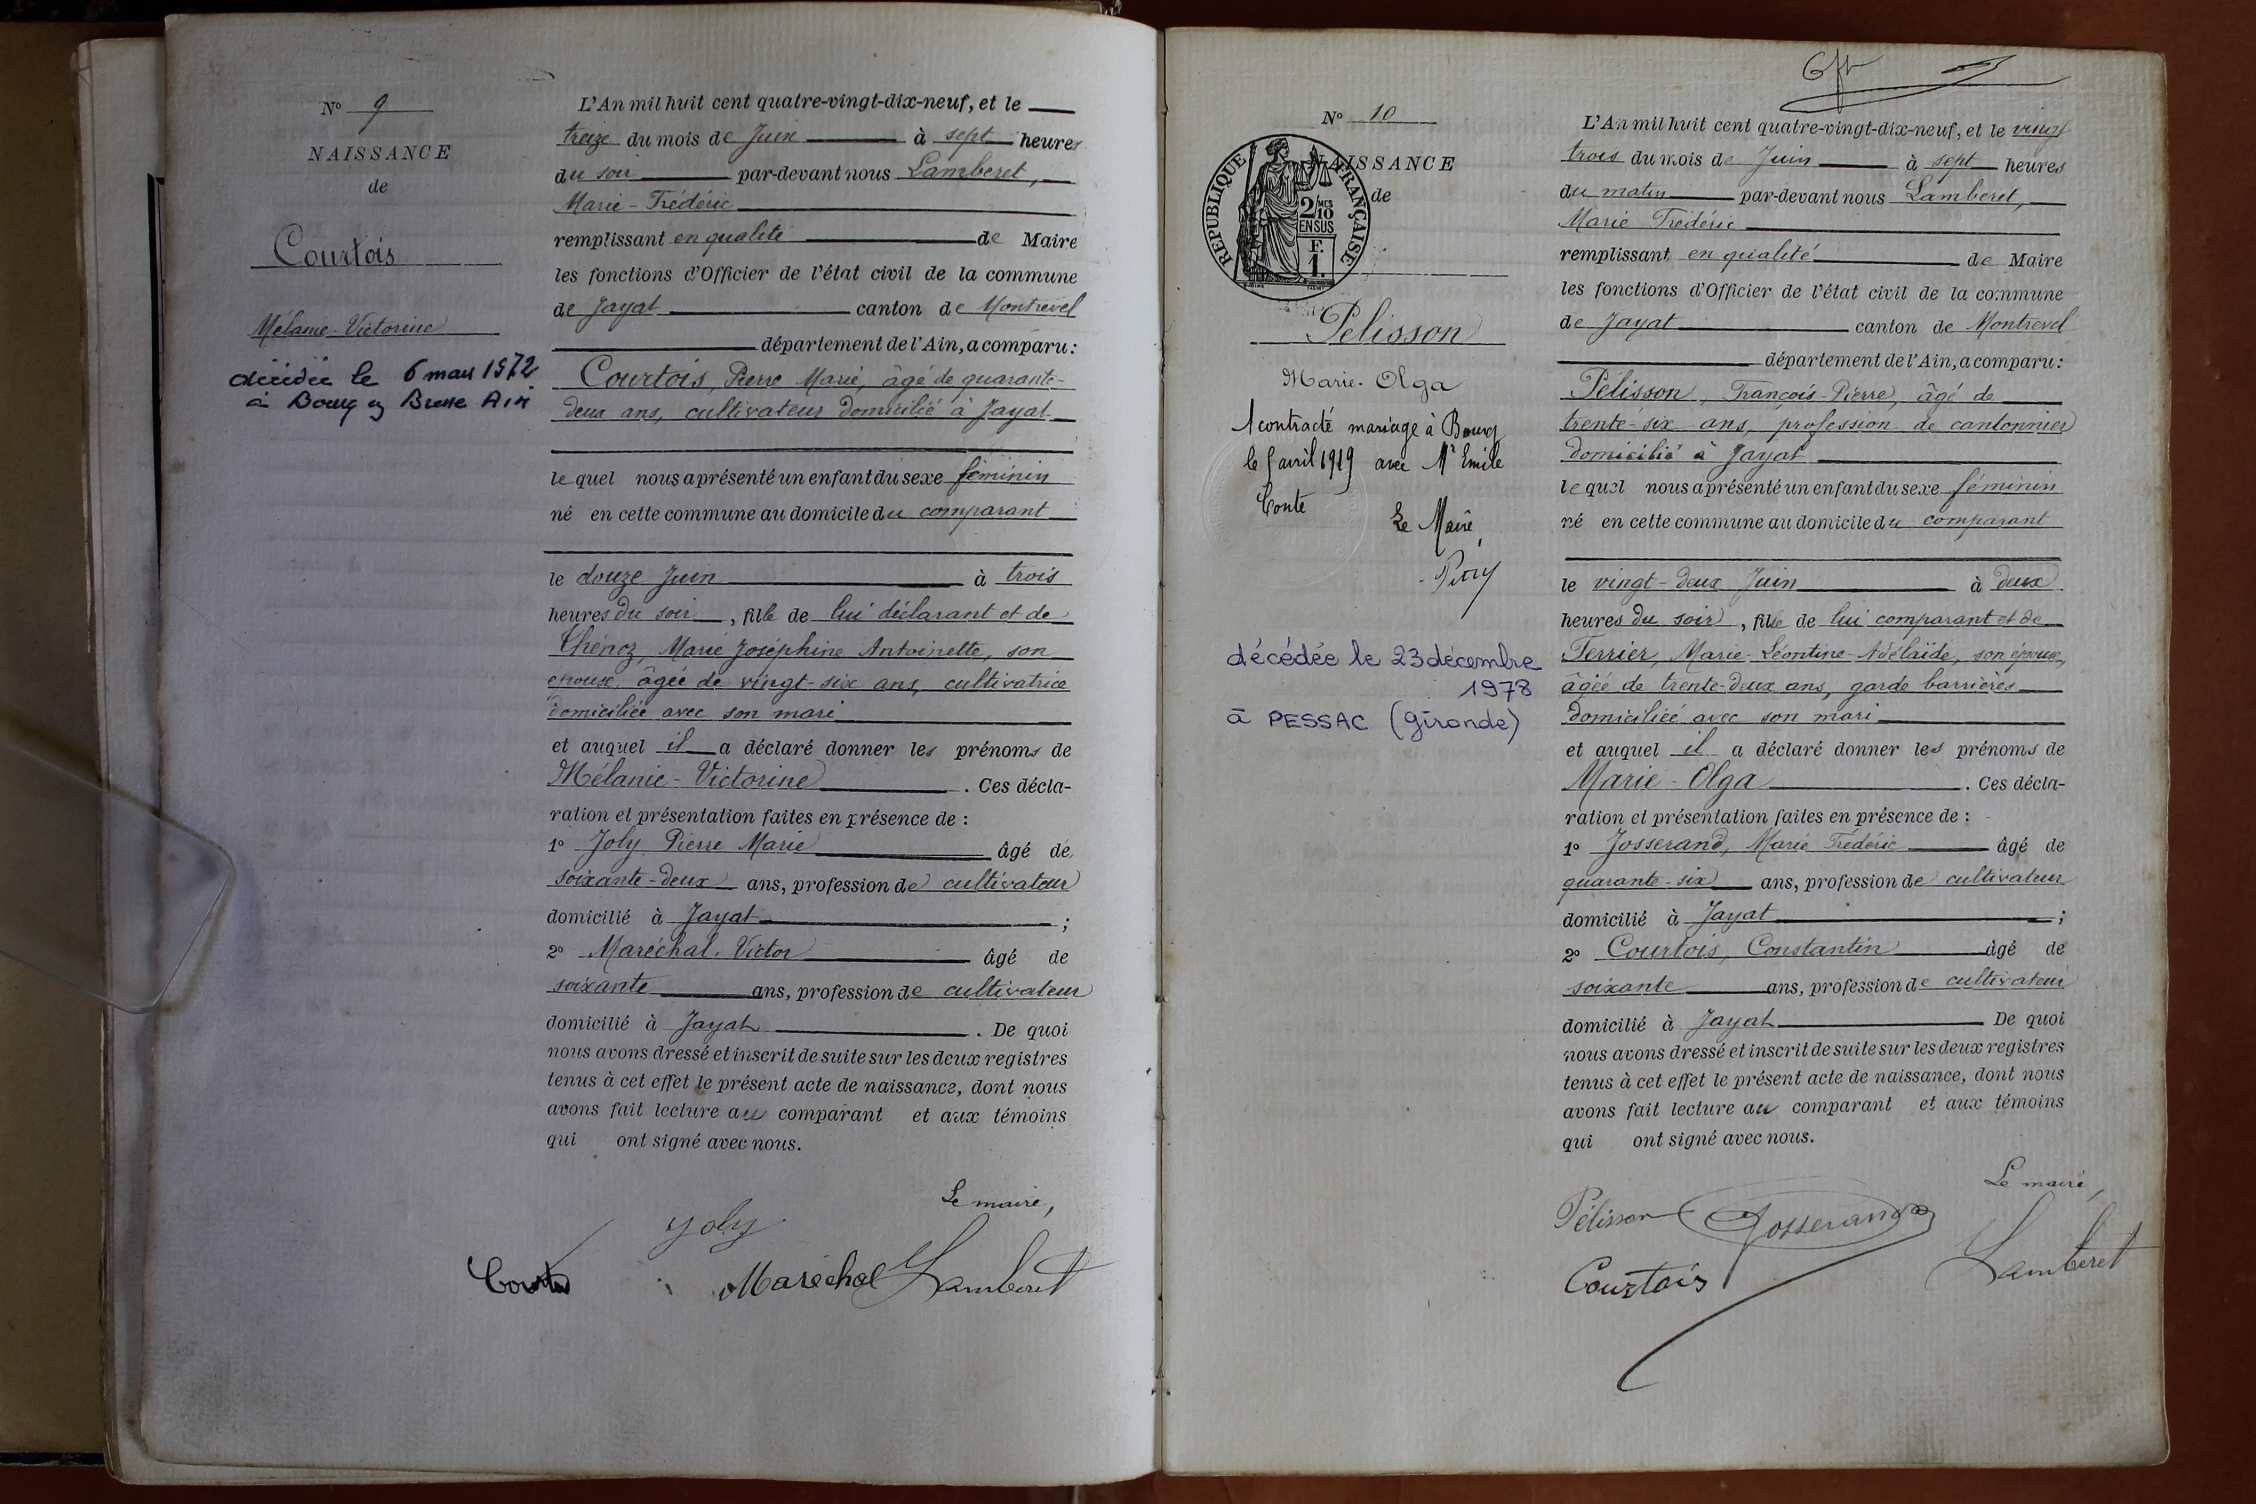 N° 9
NAISSANCE
de
Courtois
Mélanie-Victorine
décédée le 6 mars 1972
à Bourg en Bresse Ain
L'An mil huit cent quatre-vingt-dix-neuf, et le
treize du mois de Juin à sept heures
du soir par-devant nous Lamberet,
Marie-Frédéric
remplissant en qualité de Maire
les fonctions d'Officier de l'état civil de la commune
de Jayat canton de Montrevel
département de l'Ain, a comparu :
Courtois, Pierre Marie, âgé de quarante-
deux ans, cultivateur domicilié à Jayat
le quel nous a présenté un enfant du sexe féminin
né en cette commune au domicile du comparant
le douze Juin à trois
heures du soir, fille de lui déclarant et de
Marie Joséphine Antoinette, son
épouse, âgée de vingt-six ans, cultivatrice
domiciliée avec son mari
et auquel il a déclaré donner les prénoms de
Mélanie-Victorine. Ces décla-
ration et présentation faites en présence de :
1° Joly Pierre Marie âgé de
soixante-deux ans, profession de cultivateur
domicilié à Jayat ;
2° Maréchal, Victor âgé de
soixante ans, profession de cultivateur
domicilié à Jayat. De quoi
nous avons dressé et inscrit de suite sur les deux registres
tenus à cet effet le présent acte de naissance, dont nous
avons fait lecture au comparant et aux témoins
qui ont signé avec nous.
Le maire,
Joly
Maréchal Lamberet
N° 10
NAISSANCE
de
REPUBLIQUE FRANÇAISE
2/10 MES
EN SUS
F.
1.
Pelisson
Marie-Olga
A contracté mariage à Bourg
le 5 avril 1919 avec Mr Emile
Conte
Le Maire,
décédée le 23 décembre
1978
à PESSAC (Gironde)
L'An mil huit cent quatre-vingt-dix-neuf, et le vingt
trois du mois de Juin à sept heures
du matin par-devant nous Lamberet,
Marie Frédéric
remplissant en qualité de Maire
les fonctions d'Officier de l'état civil de la commune
de Jayat canton de Montrevel
département de l'Ain, a comparu :
Pélisson, François-Pierre, âgé de
trente-six ans, profession de cantonnier
domicilié à Jayat
le quel nous a présenté un enfant du sexe féminin
né en cette commune au domicile du comparant
le vingt-deux Juin à deux
heures du soir, fille de lui comparant et de
Terrier, Marie-Léontine-Adélaïde, son épouse,
âgée de trente-deux ans, garde barrières
domiciliée avec son mari
et auquel il a déclaré donner les prénoms de
Marie-Olga. Ces décla-
ration et présentation faites en présence de :
1° Josserand, Marie Frédéric âgé de
quarante-six ans, profession de cultivateur
domicilié à Jayat ;
2° Courtois, Constantin âgé de
soixante ans, profession de cultivateur
domicilié à Jayat De quoi
nous avons dressé et inscrit de suite sur les deux registres
tenus à cet effet le présent acte de naissance, dont nous
avons fait lecture au comparant et aux témoins
qui ont signé avec nous.
Le maire,
Pélisson Josserand
Courtois Lamberet